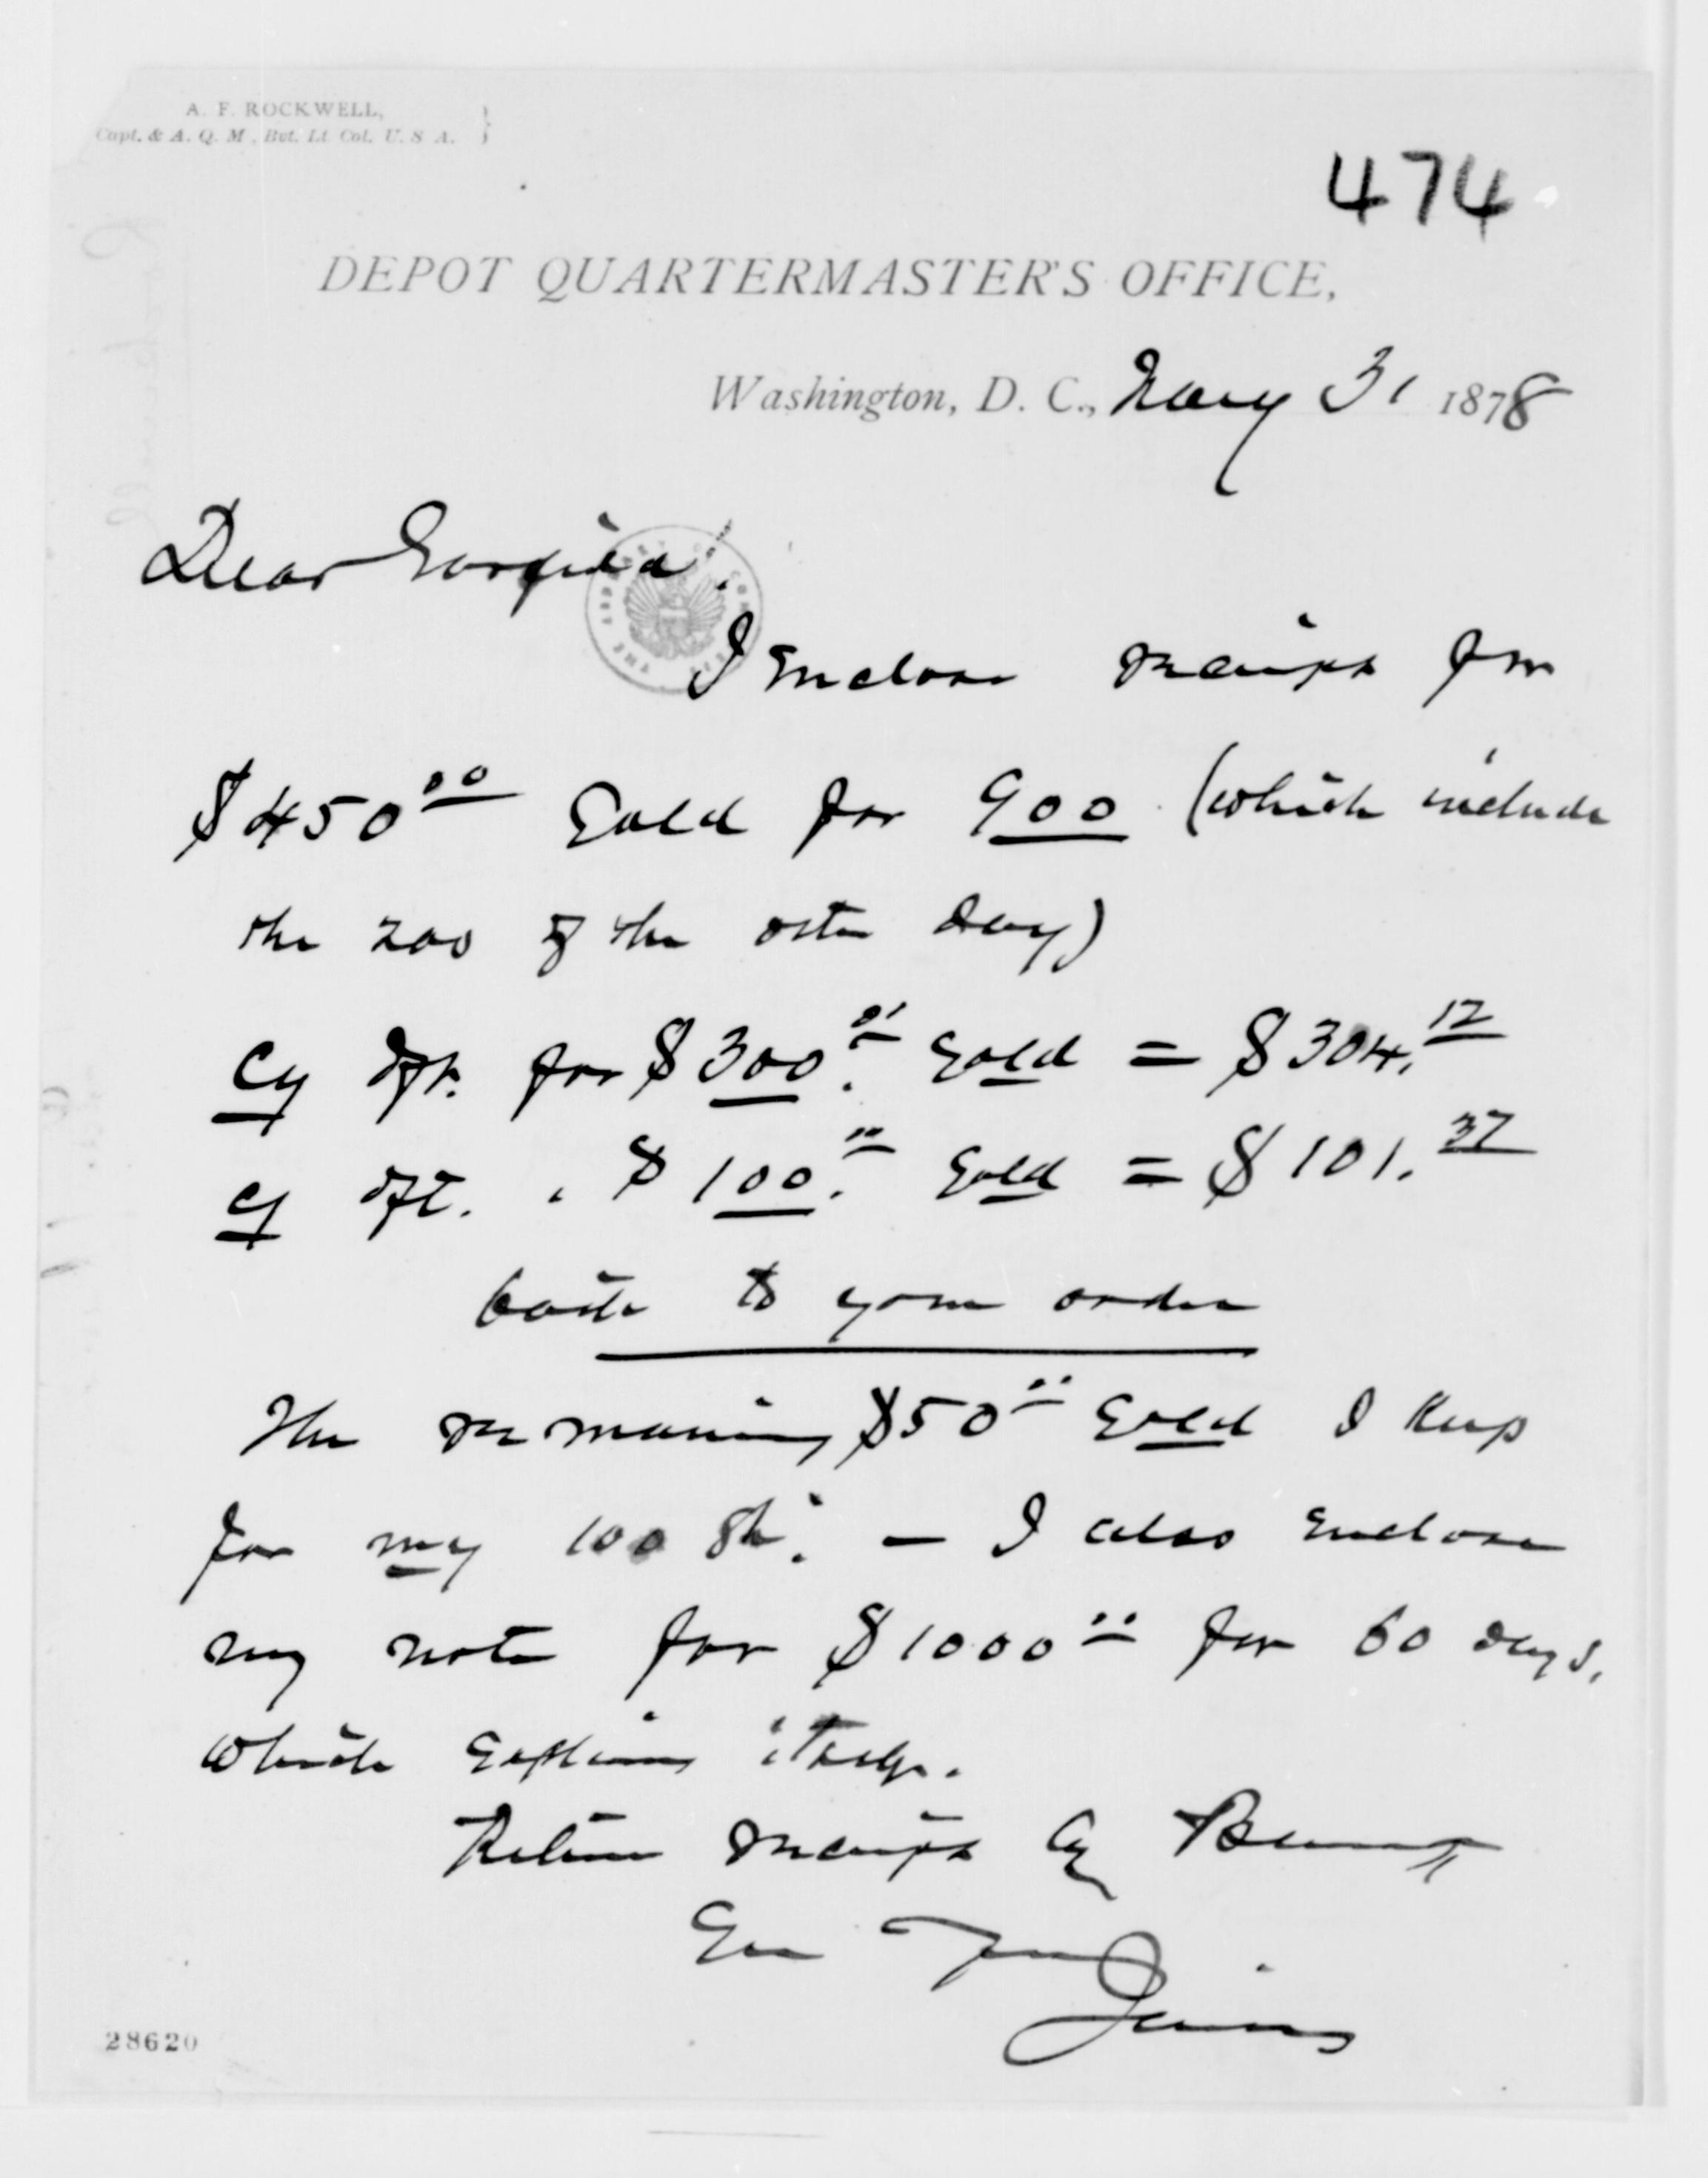 A. F. ROCKWELL,
Capt. & A. Q. M., Bvt. Lt. Col. U. S. A.
474
DEPOT QUARTERMASTER'S OFFICE,
Washington, D. C., May 31 1878
Dear Garfield.
I enclose receipt for
$450.00 Gold for 900 (which include
the 200 of the other day)
Cy dft. for $300.00 Gold = $304.12
Cy dft. " $100.00 Gold = $101.37
both to your order
The remaining $50.00 Gold I keep
for my 100 Sh. — I also enclose
my note for $1000.00 for 60 days.
which explains itself.
Return receipt by
Ever Yours
28620